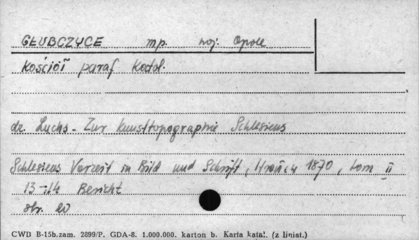 GŁUBCZYCE mp. woj. Opole
Kościół paraf. Katol.
dr. Luchs - Zur Kunsttopographie Schlesiens
Schlesiens Vorzeit in Bild und Schrift, 1870, tom II
13-14 Bericht
str. 20
CWD B-15b. zam. 2899/P. GDA-8. 1.000.000. karton b. Karta katal. (z liniat.)